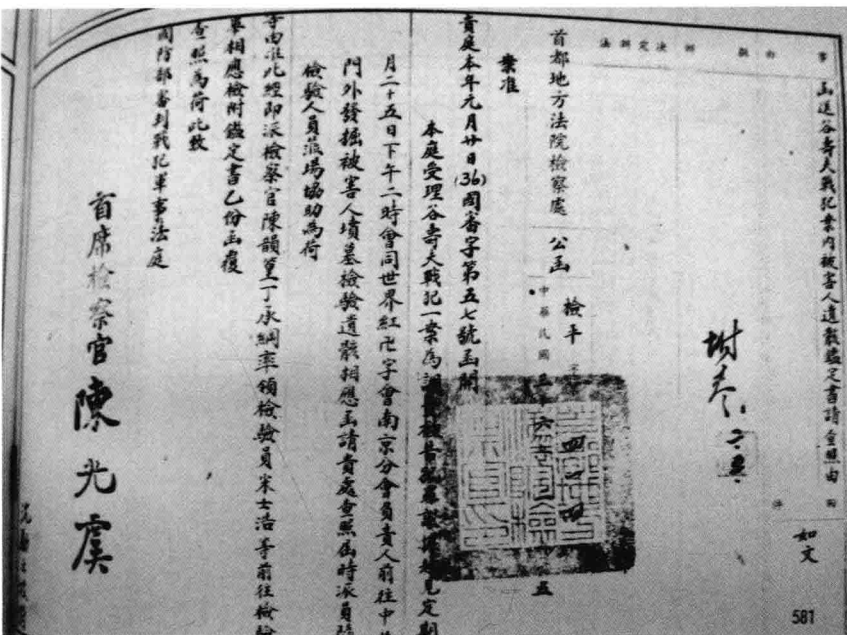 事由
函送谷壽夫戰犯案內被害人遺骸鑑定書請查照由
附
如文
擬辦
決定辦法
附卷
首都地方法院檢察處 公函
檢平 字
四一四
中華民國
六
五
案准
貴庭本年元月廿日(36)國審字第五七號函開
本庭受理谷壽夫戰犯一案為調查被害
見定期
月二十五日下午二時會同世界紅卍字會南京分會負責人前往中
門外發掘被害人墳墓檢驗遺骸相應函請貴處查照屆時派員
檢驗人員蒞場協助為荷
等由准此經即派檢察官陳韻篁丁承綱率領檢驗員宋士浩等前往檢驗
畢相應檢附鑑定書乙份函覆
查照為荷此致
國防部審判戰犯軍事法庭
首席檢察官陳光虞
581